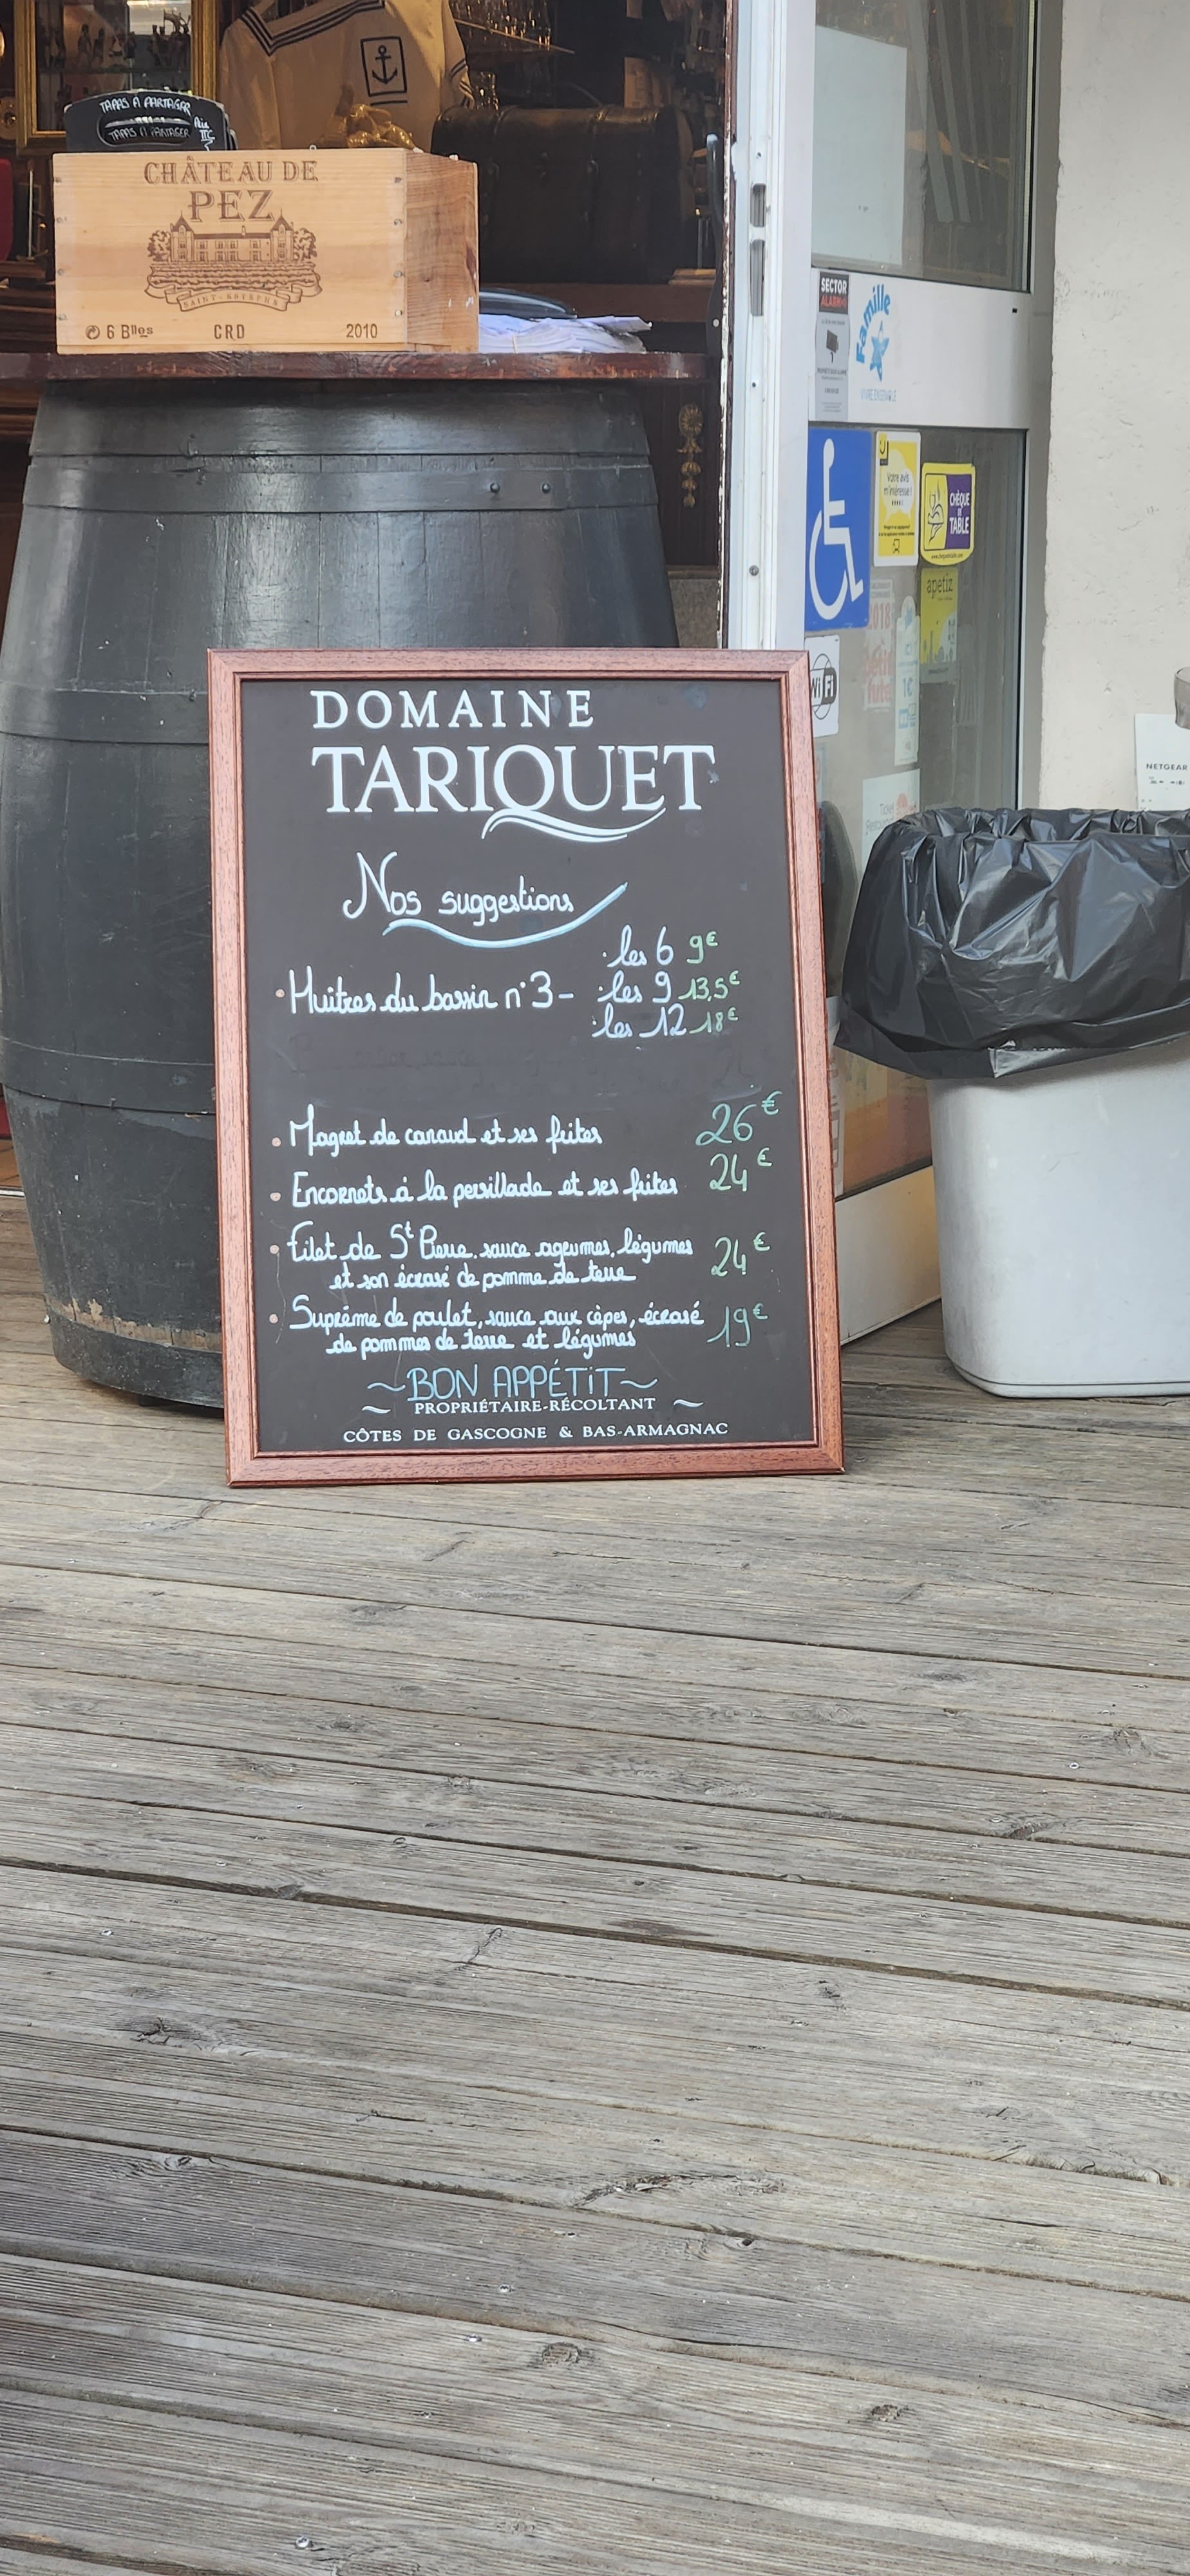 TAPAS A PARTAGER
TAPAS A PARTAGER
CHÂTEAU DE
PEZ
SAINT-ESTÈPHE
6 Blles CRD 2010
SECTOR
ALARM
Famille
VIVRE ENSEMBLE
Votre avis
m'intéresse!
CHÈQUE
DE
TABLE
apetiz
2018
WiFi
1€
NETGEAR
Ticket
DOMAINE
TARIQUET
Nos suggestions
• Huitres du bassin n°3 - • les 6 9€
• les 9 13,5€
• les 12 18€
• Magret de canard et ses frites 26€
• Encornets à la persillade et ses frites 24€
• Filet de St Pierre, sauce agrumes, légumes 24€
et son écrasé de pomme de terre
• Suprême de poulet, sauce aux cèpes, écrasé 19€
de pommes de terre et légumes
~BON APPÉTIT~
PROPRIÉTAIRE-RÉCOLTANT
CÔTES DE GASCOGNE & BAS-ARMAGNAC